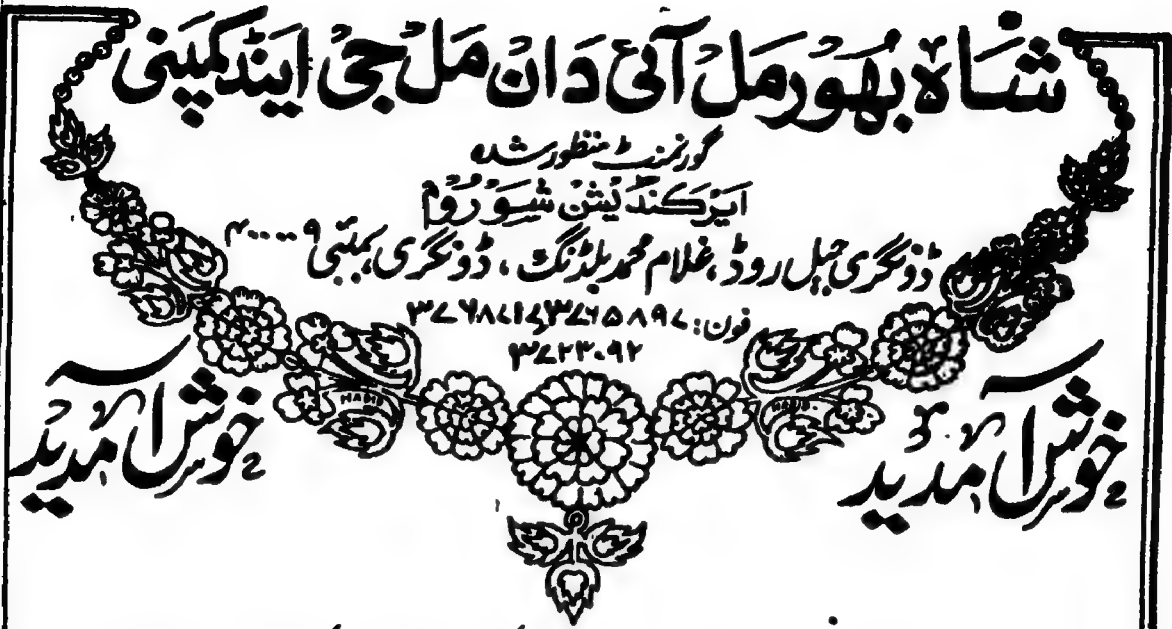 شاہ بھورمل آئی دان مل جی اینڈ کمپنی
گورنمنٹ منظور شدہ
ایرکنڈیشن شوروم
ڈونگری جیل روڈ، غلام محمد بلڈنگ، ڈونگری، بمبئی ۴۰۰۰۰۹
فون: ۳۷۶۵۸۹۷
۳۷۲۳۰۹۲
خوش آمدید
خوش آمدید
HAMID